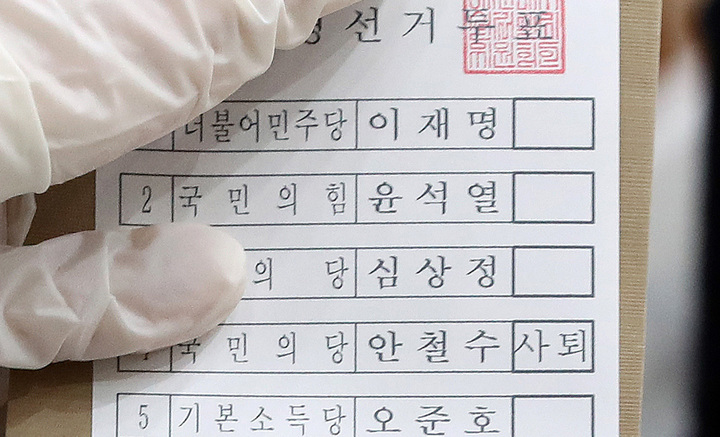 선거투표
더불어민주당 이재명
2 국민의힘 윤석열
의당 심상정
국민의당 안철수 사퇴
5 기본소득당 오준호